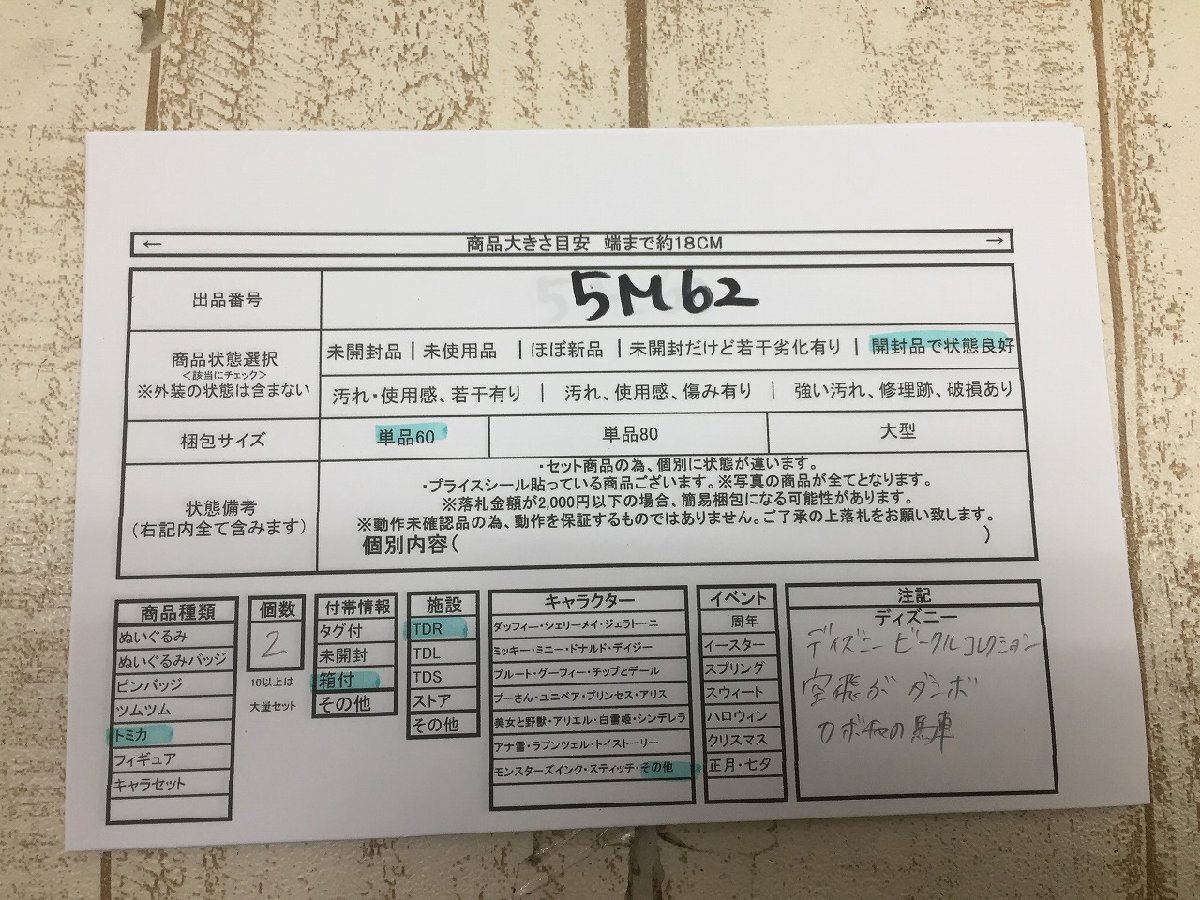 ← 商品大きさ目安 端まで約18CM →
出品番号 5M62
商品状態選択
<該当にチェック>
※外装の状態は含まない
未開封品 | 未使用品 | ほぼ新品 | 未開封だけど若干劣化有り | 開封品で状態良好
汚れ・使用感、若干有り | 汚れ、使用感、傷み有り | 強い汚れ、修理跡、破損あり
梱包サイズ 単品60 単品80 大型
状態備考
(右記内全て含みます)
・セット商品の為、個別に状態が違います。
・プライスシール貼っている商品ございます。※写真の商品が全てとなります。
※落札金額が2,000円以下の場合、簡易梱包になる可能性があります。
※動作未確認品の為、動作を保証するものではありません。ご了承の上落札をお願い致します。
個別内容( )
商品種類
ぬいぐるみ
ぬいぐるみバッジ
ピンバッジ
ツムツム
トミカ
フィギュア
キャラセット
個数
2
10以上は
大量セット
付帯情報
タグ付
未開封
箱付
その他
施設
TDR
TDL
TDS
ストア
その他
キャラクター
ダッフィー・シェリーメイ・ジェラトーニ
ミッキー・ミニー・ドナルド・デイジー
プルート・グーフィー・チップとデール
プーさん・ユニベア・プリンセス・アリス
美女と野獣・アリエル・白雪姫・シンデレラ
アナ雪・ラプンツェル・トイストーリー
モンスターズインク・スティッチ・その他
イベント
周年
イースター
スプリング
スウィート
ハロウィン
クリスマス
正月・七夕
注記
ディズニー
ディズニー ビークルコレクション
空飛ぶ ダンボ
カボチャの馬車